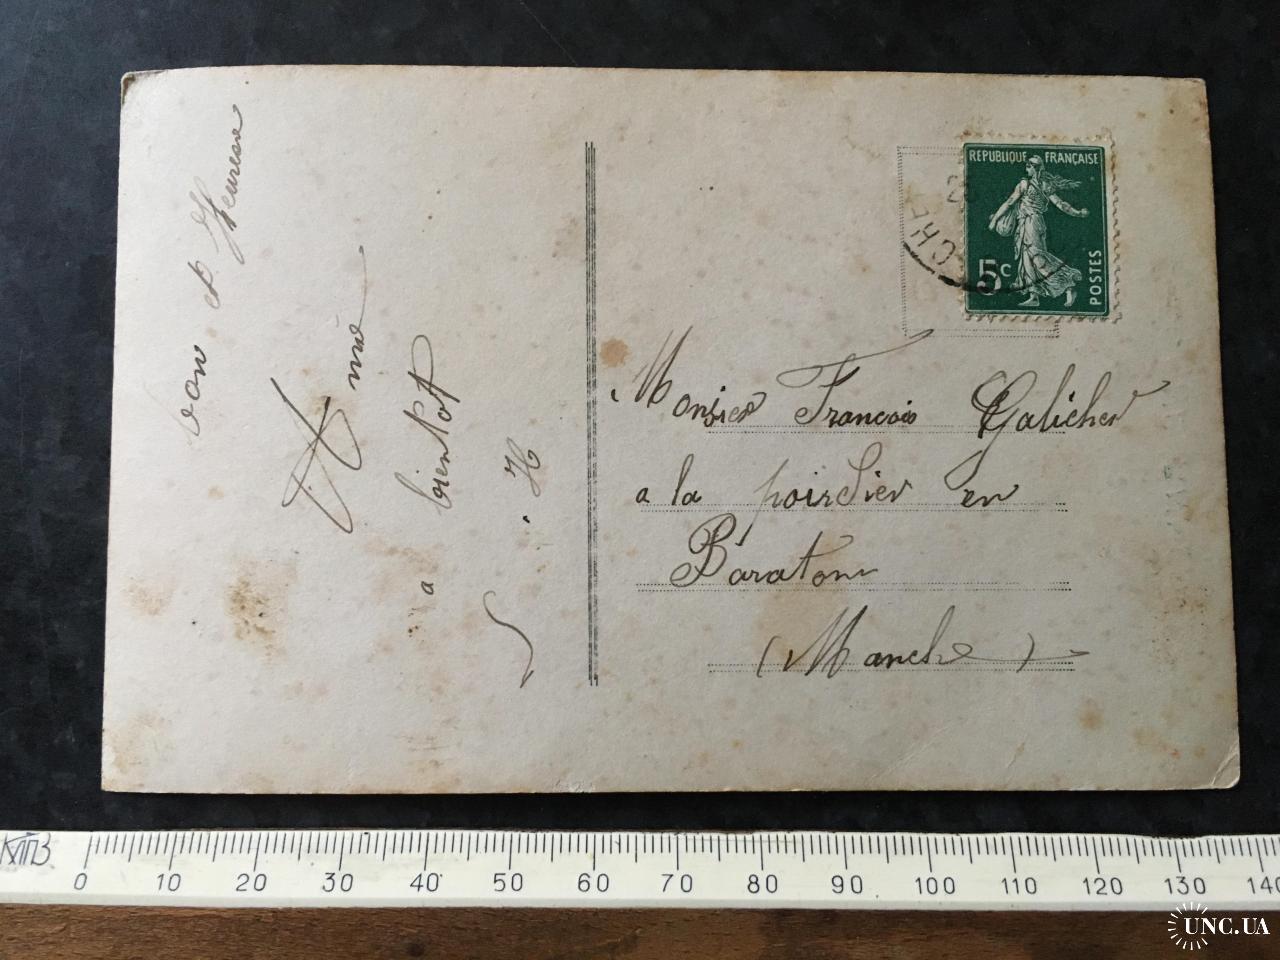 bon et Heureuse
Année
a bientot
H.
REPUBLIQUE FRANÇAISE
5c
POSTES
CHE
Monsieu François Galicher
a la poirdier en
Baraton
(Manche)
0 10 20 30 40 50 60 70 80 90 100 110 120 130 140
UNC.UA